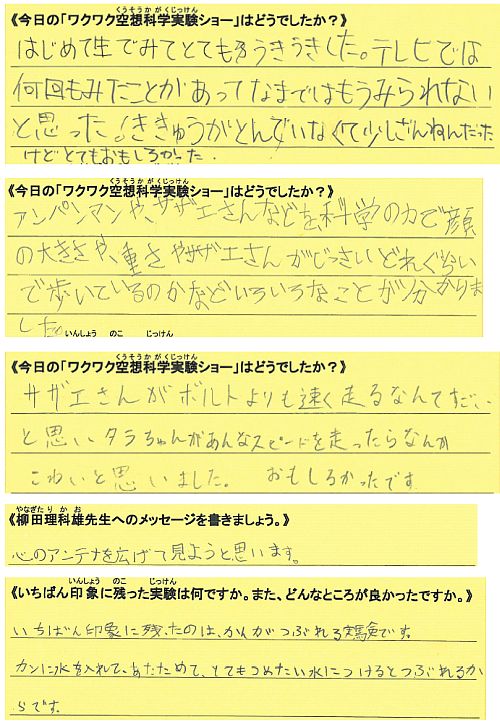 くうそうかがくじっけん
《今日の「ワクワク空想科学実験ショー」はどうでしたか?》
はじめて生でみてとてもうきうきした。テレビでは
何回もみたことがあってなまではもうみられない
と思った!ききゅうがとんでいなくて少しざんねんだった
けどとてもおもしろかった.
くうそうかがくじっけん
《今日の「ワクワク空想科学実験ショー」はどうでしたか?》
アンパンマンや、サザエさんなどを、科学の力で顔
の大きさや、重さやサザエさんがじっさいどれぐらい
で歩いているのかなどいろいろなことが分かりま
した。
いんしょう のこ じっけん
くうそうかがくじっけん
《今日の「ワクワク空想科学実験ショー」はどうでしたか?》
サザエさんがボルトよりも速く走るなんてすごい
と思いタラちゃんがあんなスピードを走ったらなんか
こわいと思いました。 おもしろかったです
やなぎたりかお
《柳田理科雄先生へのメッセージを書きましょう。》
心のアンテナを広げて見ようと思います。
いんしょう のこ じっけん
《いちばん印象に残った実験は何ですか。また、どんなところが良かったですか。》
いちばん印象に残ったのは、かんがつぶれる実験です。
カンに水を入れて、あたためて、とてもつめたい水につけるとつぶれるか
らです。